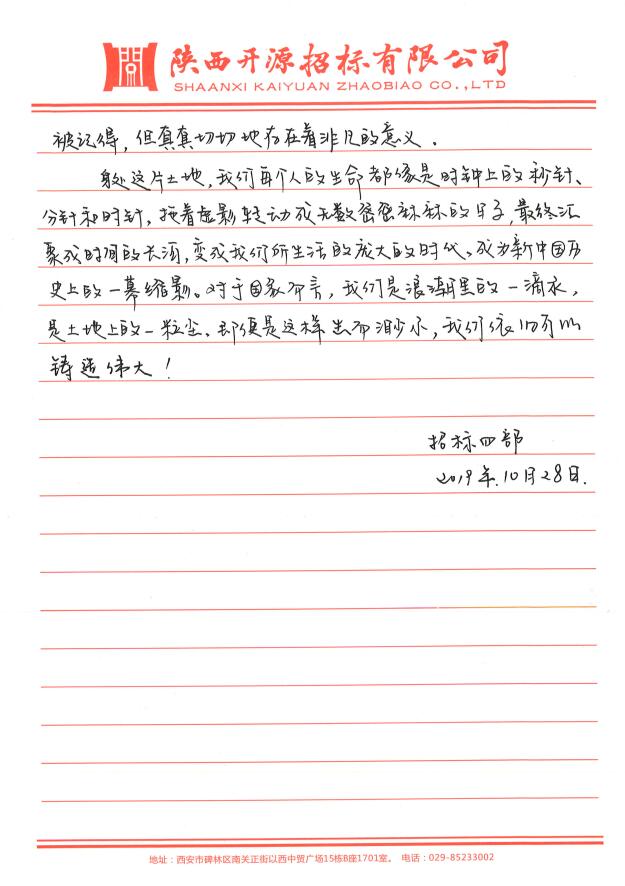 陕西开源招标有限公司
SHAANXI KAIYUAN ZHAOBIAO CO.,LTD
被记得，但真真切切地存在着非凡的意义。
身处这片土地，我们每个人的生命都像是时钟上的秒针、
分针和时针，拖着虚影转动成无数密密麻麻的日子，最终汇
聚成时间的长河，变成我们所生活的庞大的时代，成为新中国历
史上的一幕缩影。对于国家而言，我们是浪潮里的一滴水，
是土地上的一粒尘、即便是这样 而渺小，我们依旧可以
铸造伟大！
招标四部
2019年.10月28日.
地址：西安市碑林区南关正街以西中贸广场15栋B座1701室。 电话：029-85233002